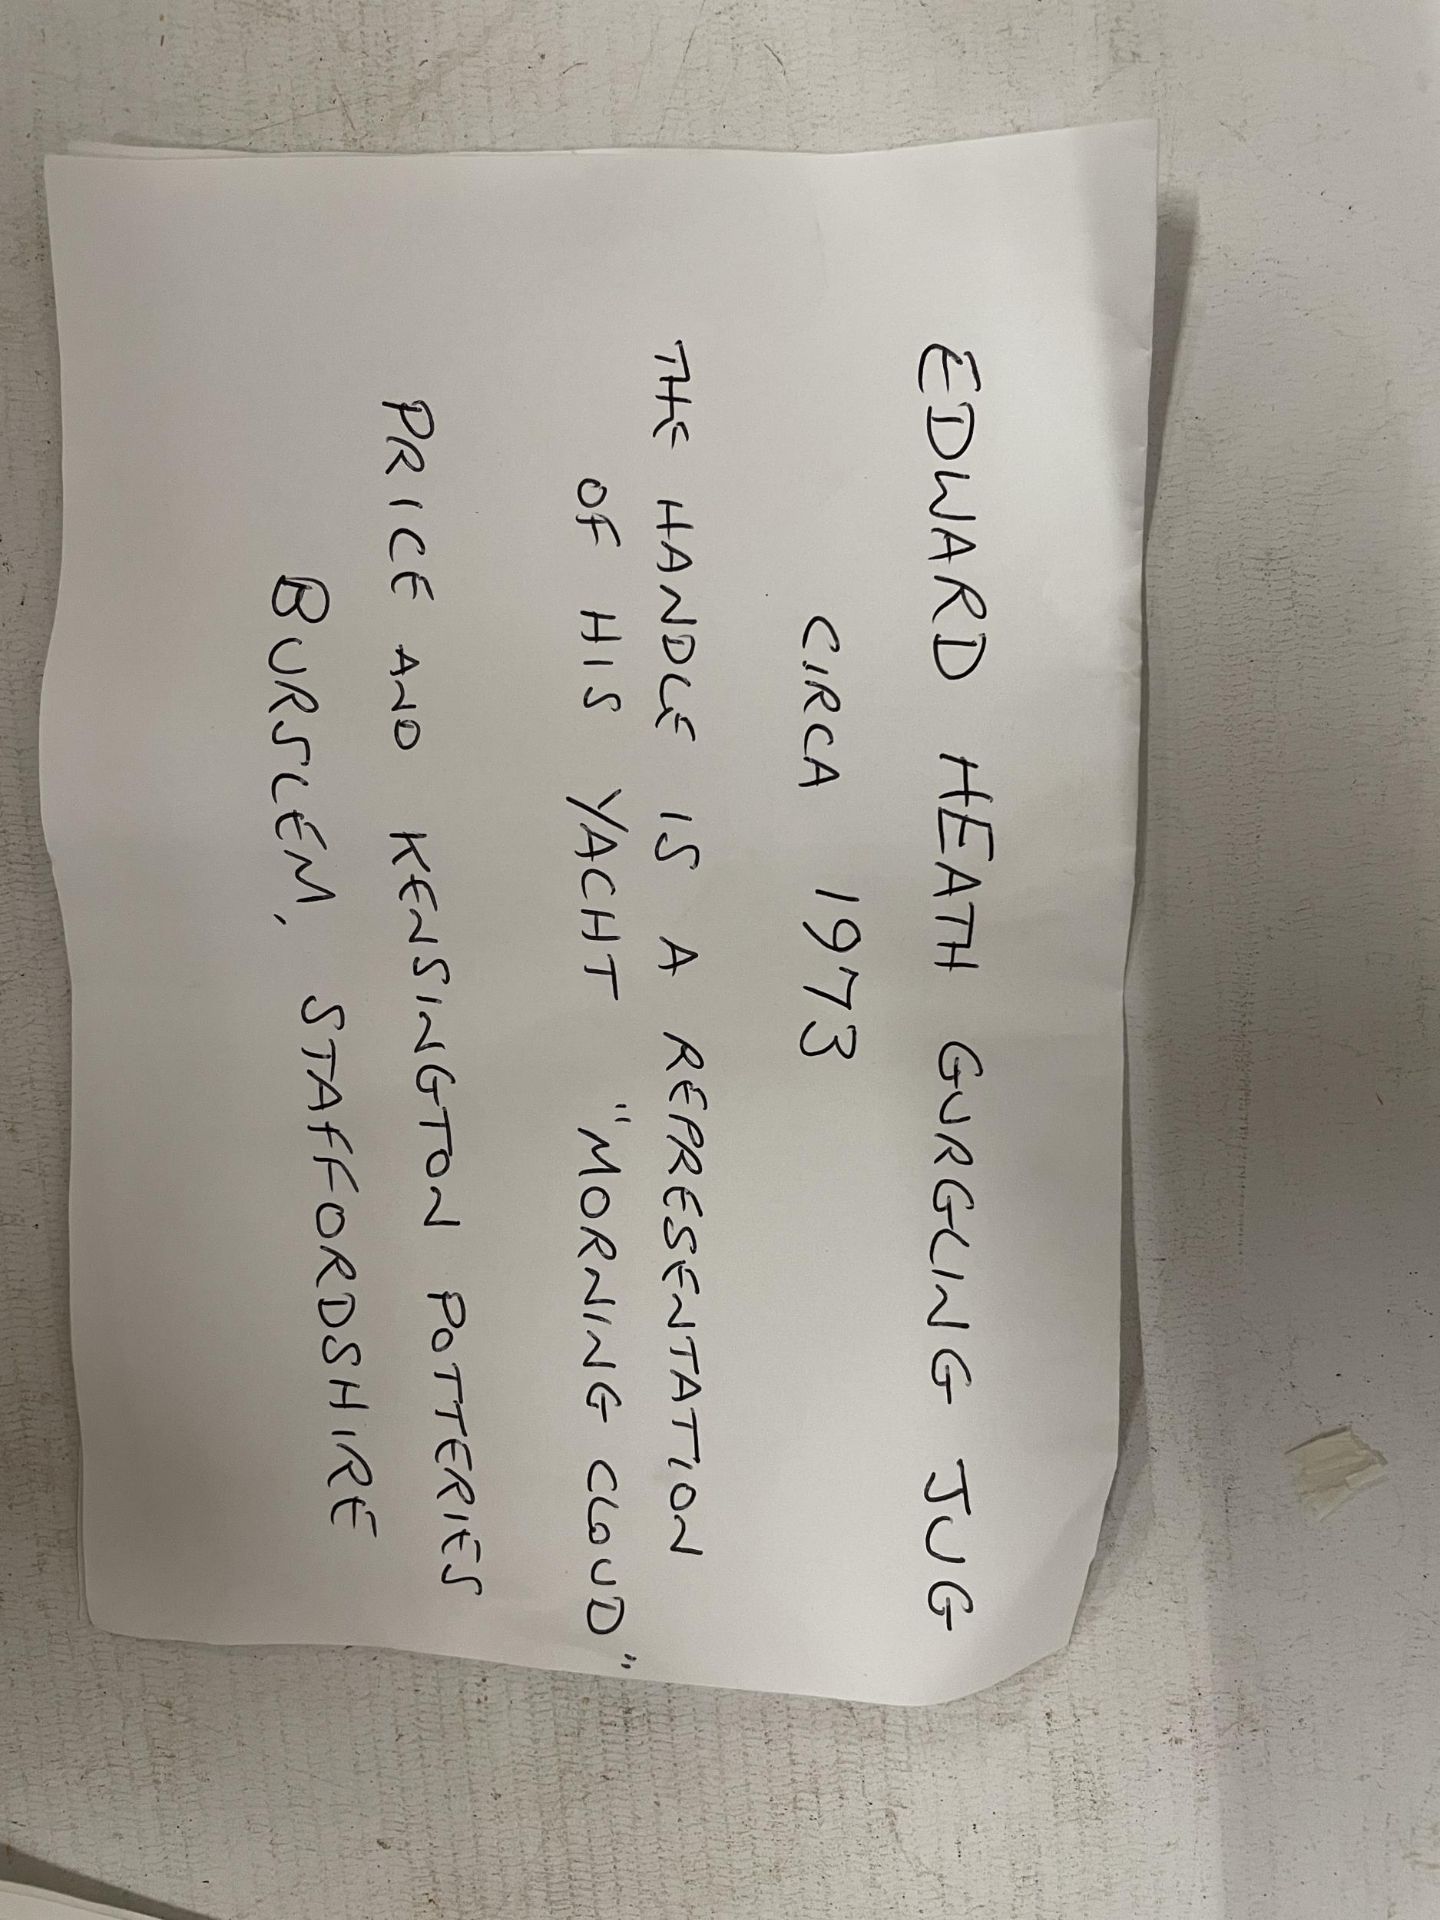 EDWARD HEATH GURGLING JUG
CIRCA 1973
THE HANDLE IS A REPRESENTATION
OF HIS YACHT "MORNING CLOUD"
PRICE AND KENSINGTON POTTERIES
BURSLEM, STAFFORDSHIRE